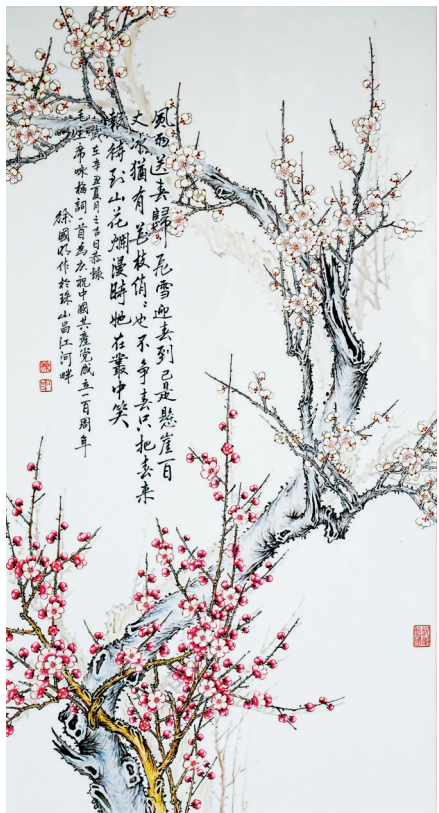 風雨送春歸飛雪迎春到已是懸崖百
丈冰猶有花枝俏俏也不争春只把春来
報待到山花爛漫時她在叢中笑
歲在辛丑夏月之吉日恭録
毛主席咏梅詞一首為慶祝中國共產党成立一百周年
徐國明作於珠山昌江河畔